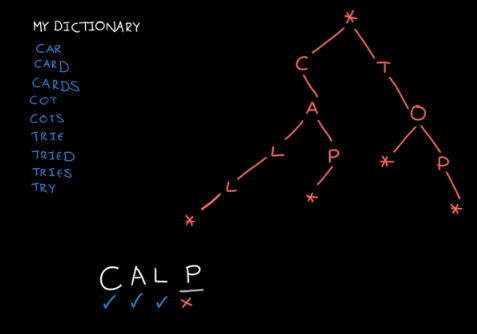 MY DICTIONARY
CAR
CARD
CARDS
COT
COTS
TRIE
TRIED
TRIES
TRY
*
C T
A O
L P * P
L
* * *
CALP
✓ ✓ ✓ ×